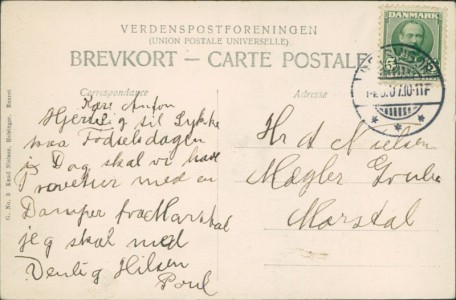 VERDENSPOSTFORENINGEN
(UNION POSTALE UNIVERSELLE)
BREVKORT – CARTE POSTALE
DANMARK
5
Correspondance
Adresse
Kære Anton
Hjertelig til Lykke
paa Födselsdagen
Dag skal vi have
med en
Damper fra Marstal
jeg skal med
Venlig Hilsen
Poul
Hr A Nielsen
Mægler
Marstal
G. No. 3 Knud Nielsen, Helsingør. Eneret